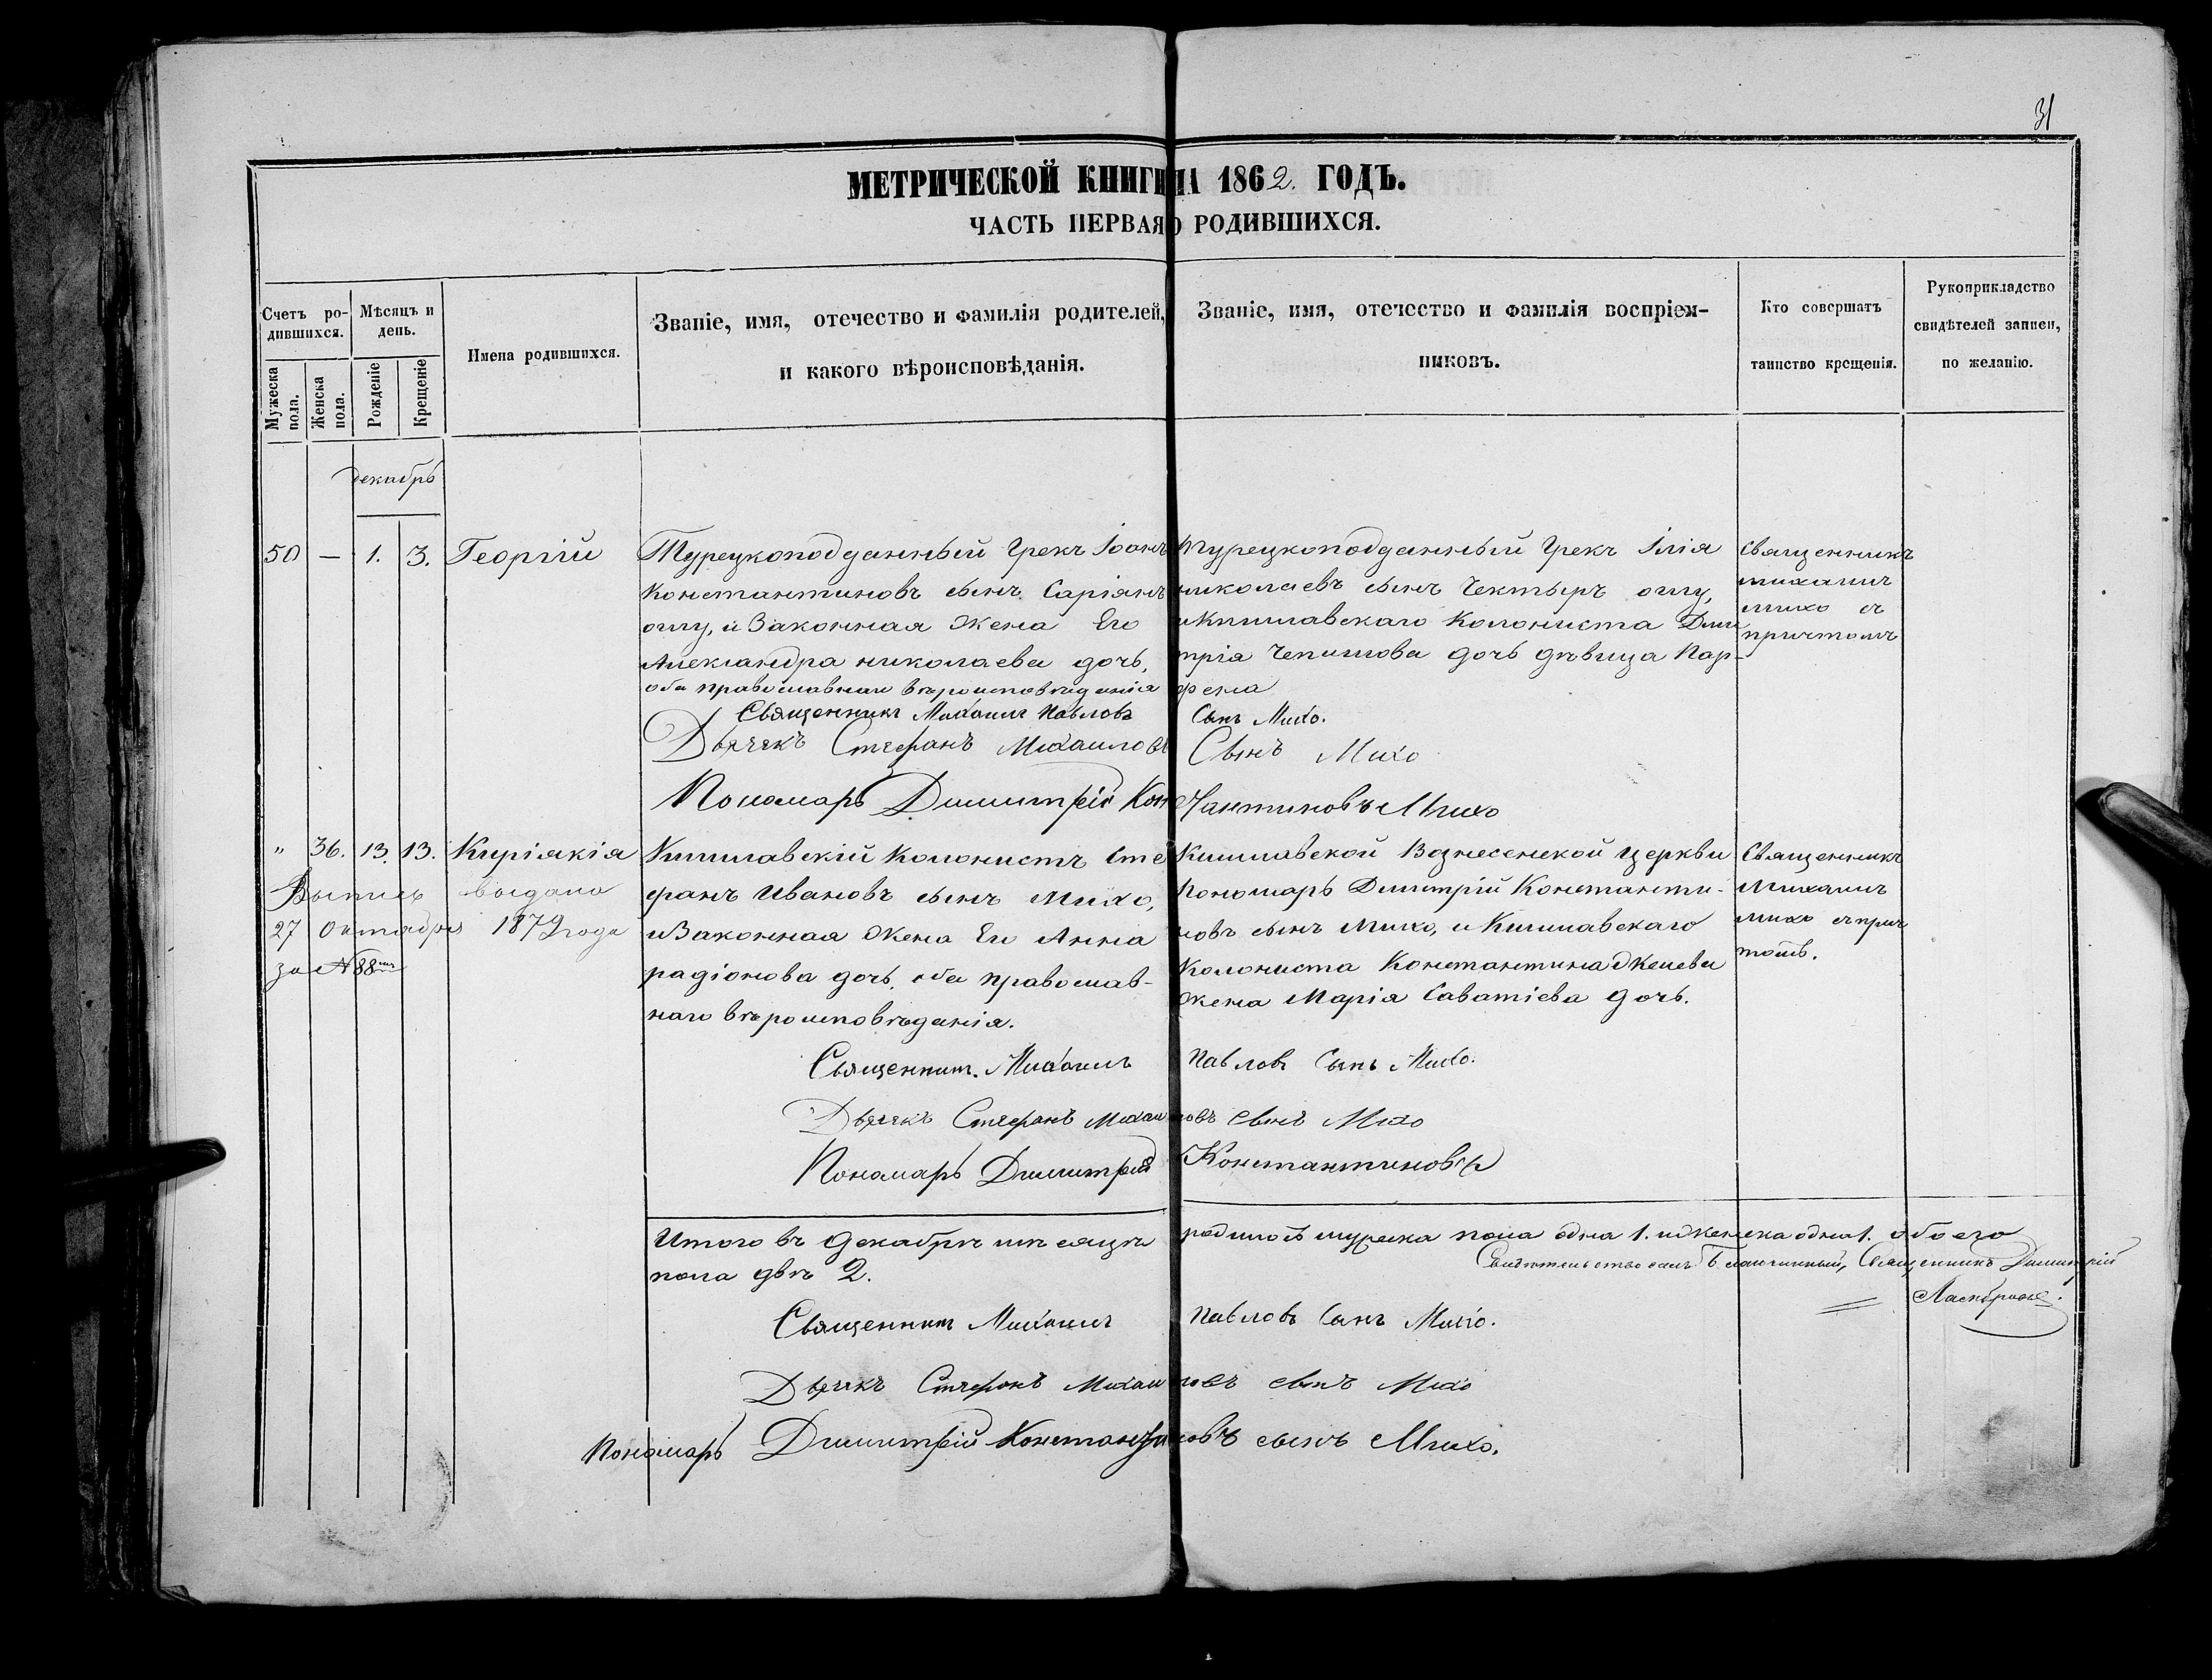 31
МЕТРИЧЕСКОЙ КНИГИ НА 1862. ГОДЪ.
ЧАСТЬ ПЕРВАЯ О РОДИВШИХСЯ.
Счетъ ро-
дившихся.
Мужеска
пола.
Женска
пола.
Мѣсяцъ и
день.
Рожденіе
Крещеніе
Имена родившихся.
Званіе, имя, отечество и фамилія родителей,
и какого вѣроисповѣданія.
Званіе, имя, отечество и фамилія воспріем-
никовъ.
Кто совершатъ
таинство крещенія.
Рукоприкладство
свидѣтелей записи,
по желанію.
декабрь
50 — 1. 3. Георгій
Турецкоподданный Грекъ Іоанъ
Константиновъ сынъ Саріянъ
оглу, и Законная Жена Его
Александра николаева дочь,
оба православнаго вѣроисповѣданія
Турецкоподданный Грекъ Илія
николаевъ сынъ Чектыръ оглу,
и Кишлавскаго Колониста Дми
трія Чепишова дочь дѣвица Пар-
фена
Священникъ
михаилъ
михо съ
причтомъ
Священникъ Михаилъ Павловъ Сынъ Михо.
Дьячекъ Стефанъ Михаиловъ Сынъ Михо
Пономарь Димитрій Константиновъ Михо
" 36. 13. 13. Киріякія
Выпись выдана
27 Октября 1879 года
за № 88мъ
Кишлавскій Колонистъ Сте
фанъ Ивановъ сынъ Михо,
и Законная Жена Его Анна
радіонова дочь, оба православ-
наго вѣроисповѣданія.
Кишлавской Вознесенской Церкви
Пономарь Димитрій Константи-
новъ сынъ Михо, и Кишлавскаго
Колониста Константина Желева
Жена Марія Саватіева дочь.
Священникъ
Михаилъ
Михо съ прич
томъ.
Священникъ. Михаилъ Павловъ Сынъ Михо.
Дьячекъ Стефанъ Михаиловъ Сынъ Михо
Пономарь Димитрій Константиновъ
Итого въ Декабрѣ мѣсяцѣ родилось мужеска пола одна 1. и женска одна 1. обоего
пола двѣ 2.
Свидѣтельствовалъ Благочинный, Священникъ Димитрій
Священникъ Михаилъ Павловъ Сынъ Михо.
Дьячекъ Стефанъ Михаиловъ сынъ Михо
Пономарь Димитрій Константиновъ сынъ Михо.